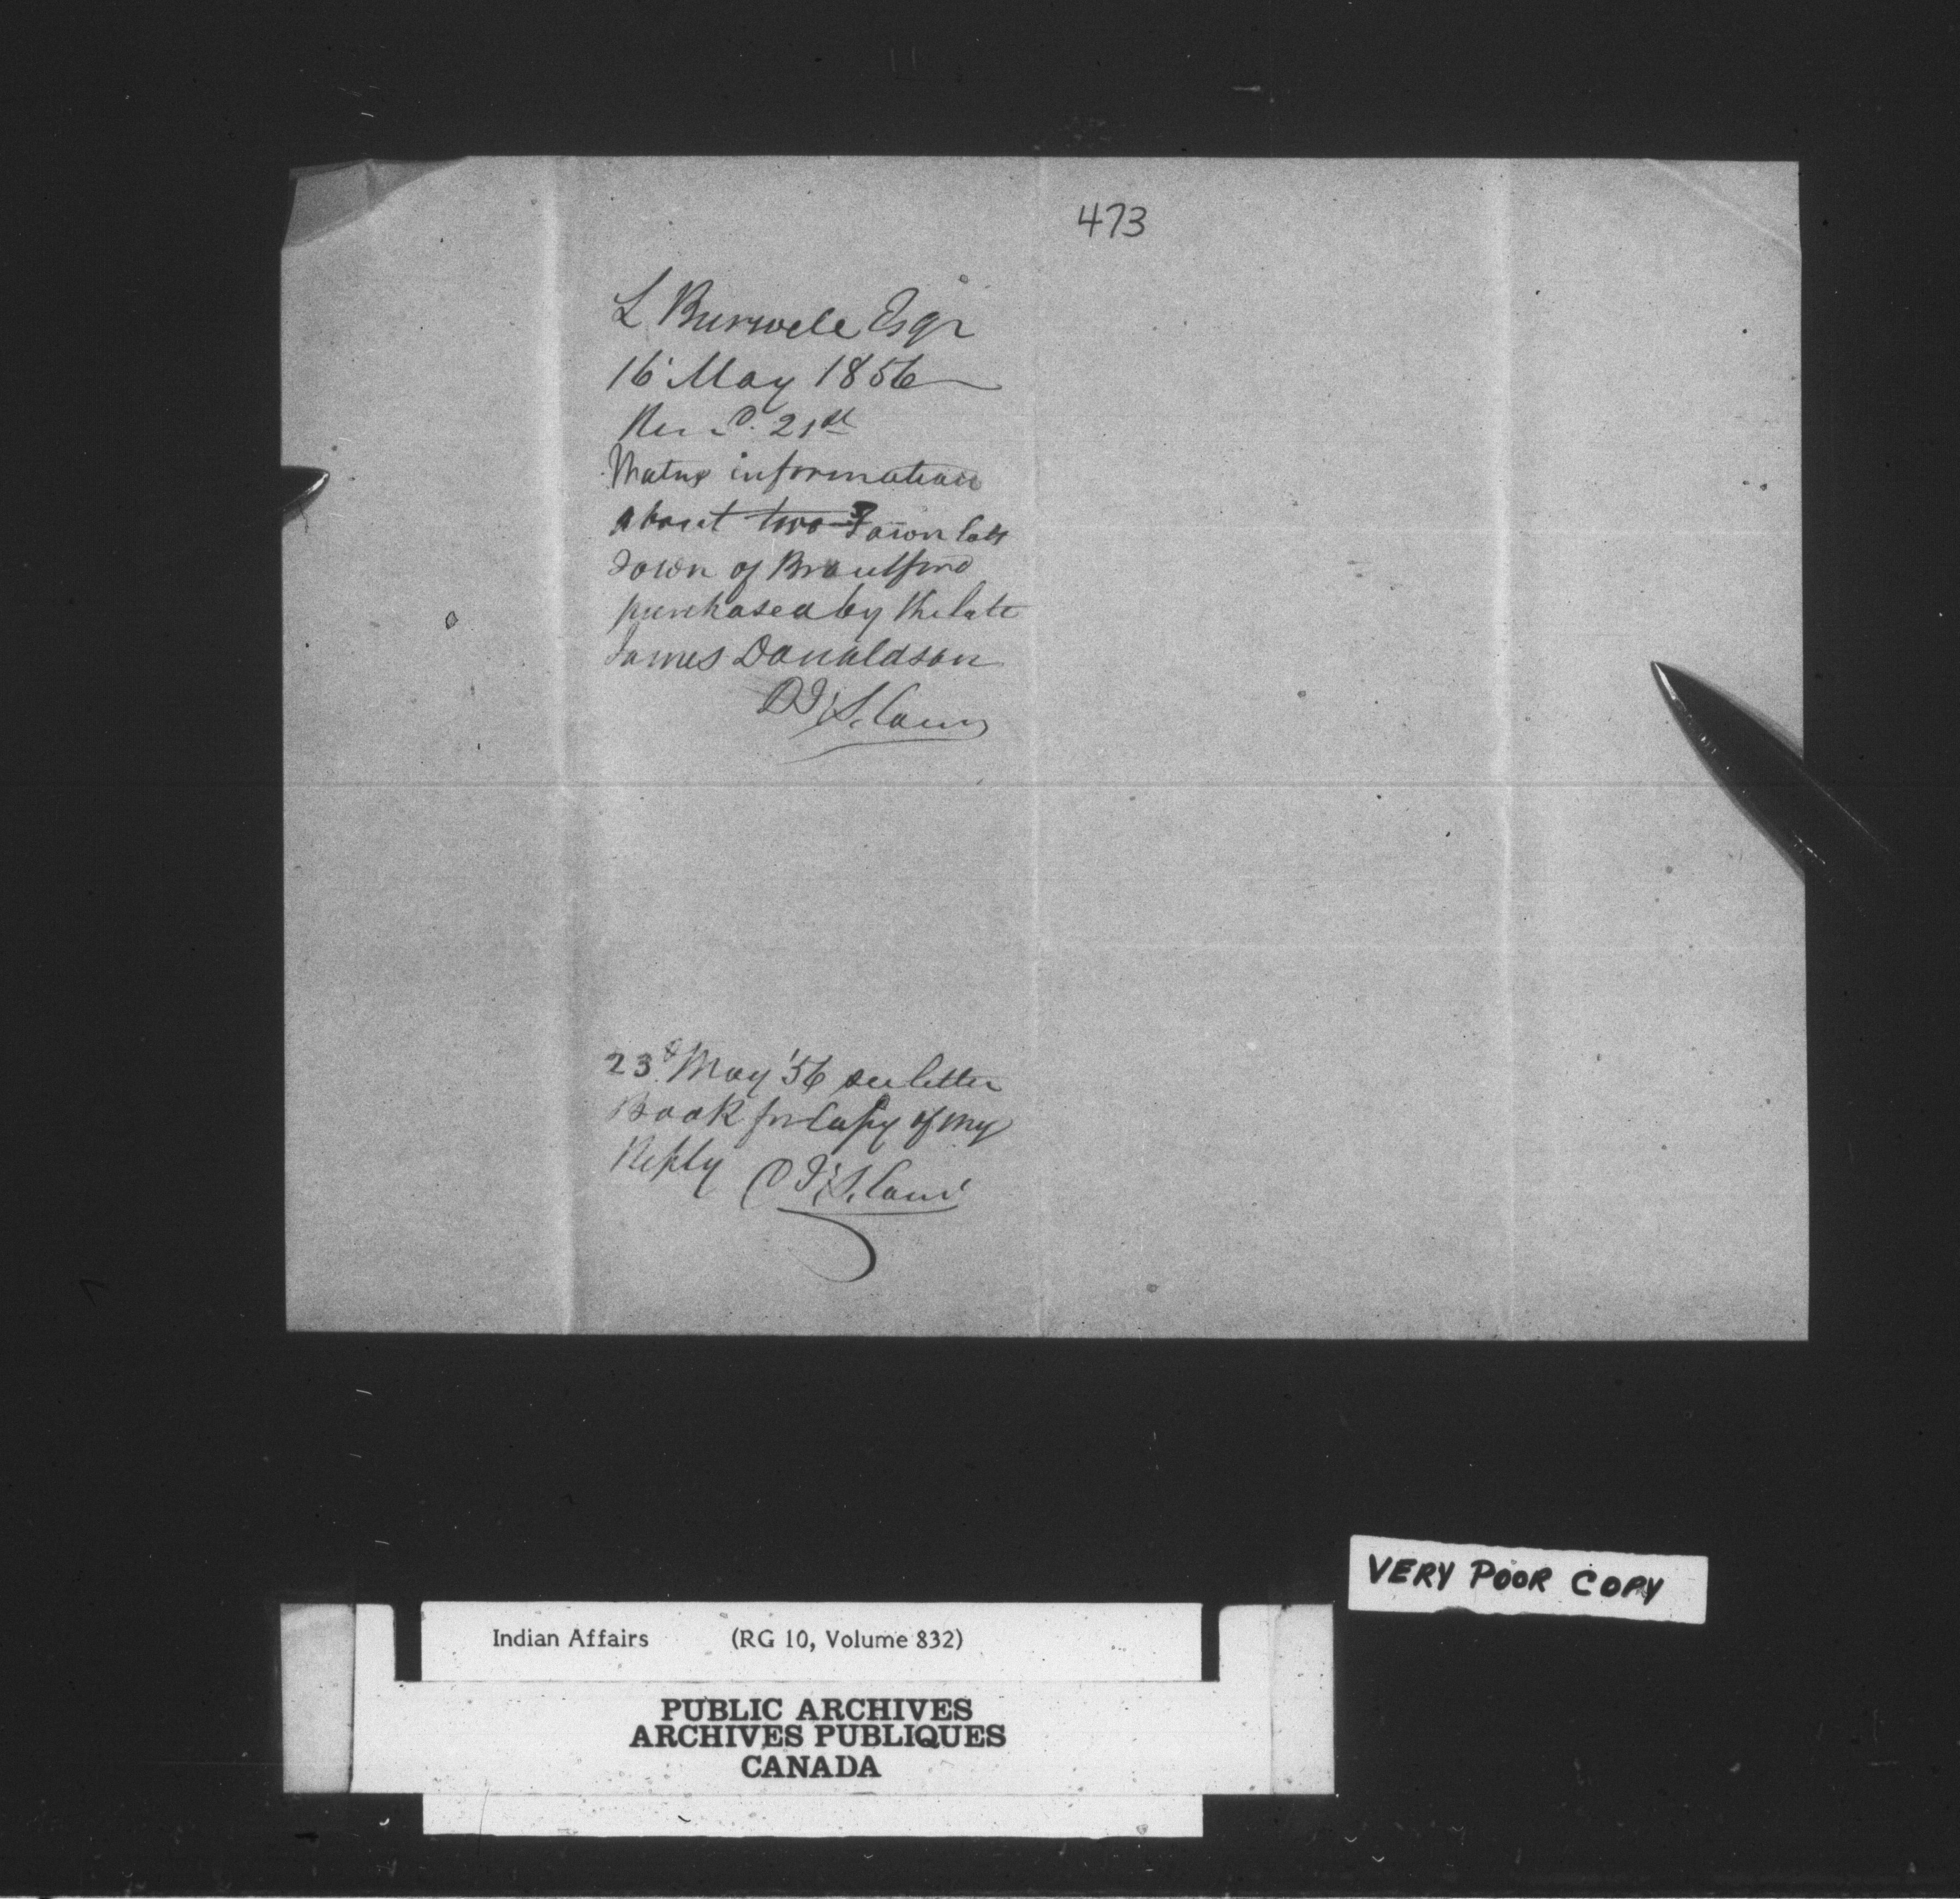 473
L Burwell Esqr
16 May 1856
Rec d. 21st
Wants information
about two 3 Town lots
Town of Brantford
purchased by the late
James Donaldson
23d May '56 see letter
Book for Copy of my
Reply
VERY POOR COPY
Indian Affairs (RG 10, Volume 832)
PUBLIC ARCHIVES
ARCHIVES PUBLIQUES
CANADA